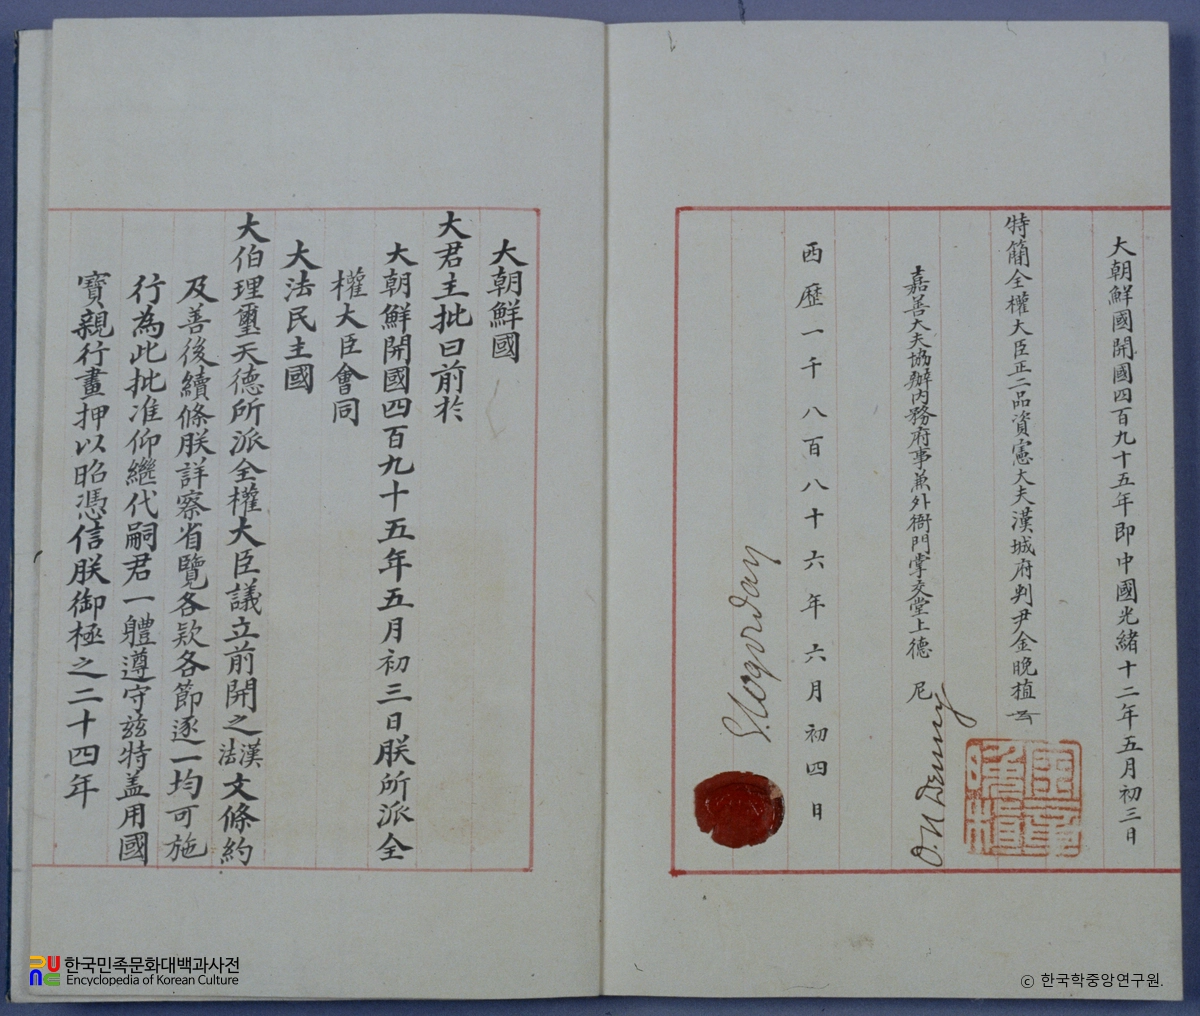 大朝鮮國開國四百九十五年即中國光緒十二年五月初三日
特簡全權大臣正二品資憲大夫漢城府判尹金晚植
嘉善大夫協辦內務府事兼外衙門掌交堂上德尼
O. N. Denny
西歷一千八百八十六年六月初四日
大朝鮮國
大君主批曰前於
大朝鮮開國四百九十五年五月初三日朕所派全
權大臣會同
大法民主國
大伯理璽天德所派全權大臣議立前開之漢法文條約
及善後續條朕詳察省覽各款各節逐一均可施
行為此批准仰繼代嗣君一體遵守玆特盖用國
寶親行畫押以昭憑信朕御極之二十四年
한국민족문화대백과사전
Encyclopedia of Korean Culture
ⓒ 한국학중앙연구원.